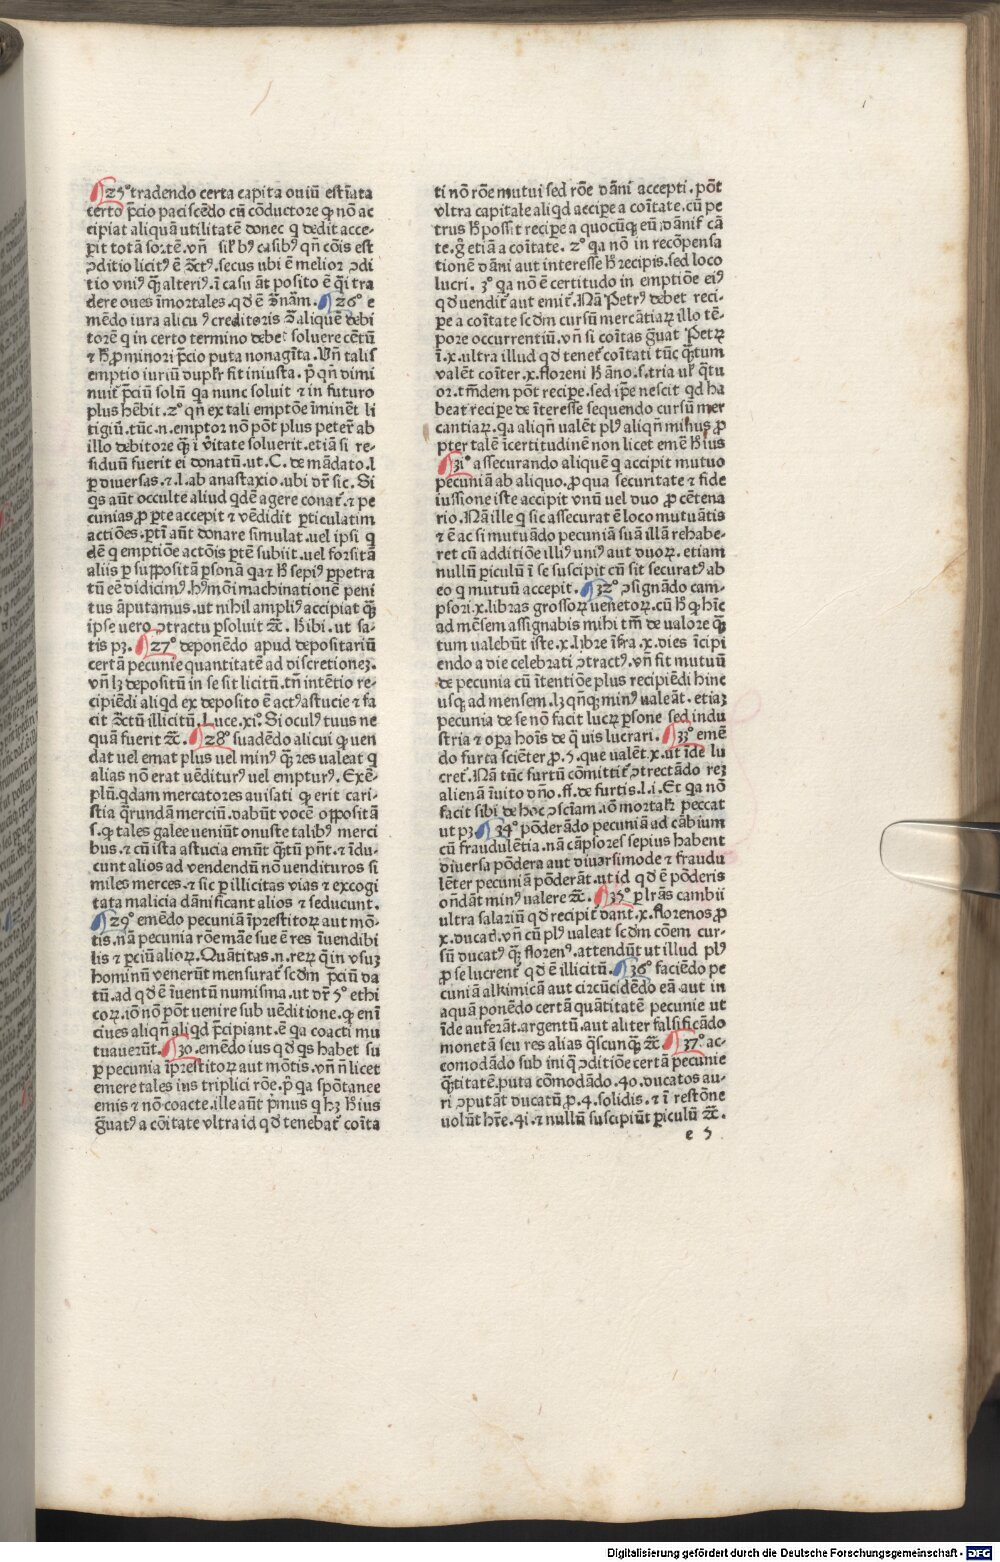 25° tradendo certa capita ouiū estīata
certo p̄cio paciscēdo cū cōductore ꝙ nō ac
cipiat aliquā utilitatē donec q̄ dedit acce-
perit totā sortē. vñ sil'r hꝰ casibꝰ qñ cōis est
ↄditio licitꝰ ē ↄ̄ctꝰ. secus ubi ē melior ↄdi
tio vniꝰ q̄ꝫ alteriꝰ. ī casu āt posito ē q̄i tra
dere oues īmortales. qd ē dānam̄. 26° e
mēdo iura alicuiꝰ creditoris ↄ̄ aliquē debi
torē q̄ in certo termino debet soluere cētū
⁊ hꝫ p̱ minori p̄cio puta nonagīta. Vñ talis
emptio iuriū dupl'r fit iniusta. p̄ qñ dimi
nuit᷑ p̄ciū solū qa nunc soluit ⁊ in futuro
plus hēbit. 2° qñ ex tali emptōe īminēt li
tigiū. tūc.n.emptor nō pōt plus peter̄ ab
illo debitore q̄ꝫ ī v̄itate soluerit. etiā si re-
siduū fuerit ei donatū. ut. C. de mādato.l
p̱ diuersas. ⁊.l. ab anastaxio. ubi dr̄ sic. Si
qs aūt occulte aliud qdē agere conat᷑. ⁊ pe
cunias p̱ p̱te accepit ⁊ vēdidit p̱ticulatim
actiōes. p̱tī aūt donare simulat. uel ipsi q̄
dē q̄ emptiōe actōis p̱tē subiit. uel forsitā
aliis p̱ suppositā p̱sonā qa ⁊ hꝫ sepiꝰ p̱petra
tū eē didicimꝰ. hꝰmōi machinationē peni
tus āputamus. ut nihil ampliꝰ accipiat q̄ꝫ
ipse uero ↄtractu p̱soluit ⁊c̄. hꝫ ibi. ut sa-
tis pꝫ. 27° deponēdo apud depositariū
certā pecunie quantitatē ad discretionez.
vñ lꝫ depositū in se sit licitū. tñ intētio re-
cipiēdi aliqd ex deposito ē actꝰ astucie ⁊ fa
cit ↄ̄ctū illicitū. Luce. xi°. Si oculꝰ tuus ne
quā fuerit ⁊c̄. 28° suadēdo alicui ꝙ uen
dat uel emat plus uel minꝰ q̄ꝫ res ualeat q̄
alias nō erat uēditurꝰ uel empturꝰ. Exē-
plū. qdam mercatores auisati ꝙ erit cari-
stia q̄rundā merciū. dabūt vocē oppositā
s. ꝙ tales galee ueniūt onuste talibꝰ merci
bus. ⁊ cū ista astucia emūt q̄tū pn̄t. ⁊ īdu-
cunt alios ad vendendū nō uendituros si
miles merces. ⁊ sic p̱ illicitas vias ⁊ excogi
tata malicia dānificant alios ⁊ seducunt.
29° emēdo pecuniā īprestitoꝝ aut mō-
tis. nā pecunia rōe māe sue ē res īuendibi
lis ⁊ p̱ciū alioꝝ. Quātitas.n.reꝝ q̄ in vsuꝫ
hominū venerūt mensurat᷑ scdm p̄ciū da
tū. ad qd ē īuentū numisma. ut dr̄ 5° ethi
coꝝ. iō nō pōt uenire sub uēditione. ꝙ enī
ciues aliqñ aliqd p̄cipiant. ē qa coacti mu
tuauerūt. 30. emēdo ius qd qs habet su
p̱ pecunia īprestitoꝝ aut mōtis. vñ ñ licet
emere tales ius triplici rōe. p̄ qa spōtanee
emis ⁊ nō coacte. ille aūt p̄mus q̄ hꝫ hꝫ ius
ḡuatꝰ a cōitate vltra id qd tenebat᷑ coīta
ti nō rōe mutui sed rōe dāni accepti. pōt
vltra capitale aliqd accipe a coītate. cū pe
trus hꝫ possit recipe a quocūqꝫ eū dānifi cā
te. ḡ etiā a coītate. 2° qa nō in recōpensa
tionē dāni aut interesse hꝫ recipis. sed loco
lucri. 3° qa nō ē certitudo in emptiōe eiꝰ
qd uendit᷑ aut emit᷑. Nā Petrꝰ debet reci-
pe a coītate scdm cursū mercātiaꝝ illo tē-
pore occurrentiū. vñ si coītas ḡuat Petꝝ
ī.x. ultra illud qd tenet᷑ coītati tūc q̄tum
valēt coīter.x. floreni hꝫ āno. s. tria ul' q̄tu
or. tm̄dem pōt recipe. sed ipe nescit qd ha
beat recipe de īteresse sequendo cursū mer
cantiaꝝ. qa aliqñ valēt plꝰ aliqñ minus p̱
pter talē īcertitudinē non licet emē hꝫ ius
31° assecurando aliquē q̄ accipit mutuo
pecuniā ab aliquo. p̱ qua securitate ⁊ fide
iussione iste accipit vnū vel duo p̱ cētena
rio. Nā ille q̄ sic assecurat ē loco mutuātis
⁊ ē ac si mutuādo pecuniā suā illā rehabe-
ret cū additiōe illiꝰ uniꝰ aut duoꝝ. etiam
nullū periculū ī se suscipit cū sit securatꝰ ab
eo q̄ mutuū accepit. 32° ↄsignādo cam-
psori.x. libras grossoꝝ uenetoꝝ. cū hꝫ ꝙ hīc
ad mēsem assignabis mihi tm̄ de valore q̄ꝫ
tum valebūt iste.x. libre īfra.x. dies īcipi
endo a die celebrati ↄtractꝰ. vñ fit mutuū
de pecunia cū ītentiōe plus recipiēdi hinc
usqꝫ ad mensem. lꝫ qñqꝫ minꝰ valeāt. etiaꝫ
pecunia de se nō facit lucꝝ p̱sone sed indu
stria ⁊ opa hoīs de q̄ vis lucrari. 33° emē
do furta sciēter p̱.5. que valēt.x. ut īde lu
cret᷑. Nā tūc furtū cōmittit᷑ ↄtrectādo reꝫ
alienā īuito dño. ff. de furtis.l.i. Et qa nō
facit sibi de hoc ↄsciam. iō mortal'r peccat
ut pꝫ. 34° pōderādo pecuniā ad cābium
cū fraudulētia. nā cāpsores sepius habent
diuersa pōdera aut diuersimode ⁊ fraudu
lēter pecuniā pōderāt. ut id qd ē pōderis
ondāt minꝰ valere ⁊c̄. 35° p̱ lr̄as cambii
ultra salariū qd recipit᷑ dant.x. florenos p̱
x. ducat᷑. vñ cū plꝰ valeat scdm cōem cur-
sū ducatꝰ q̄ꝫ florenꝰ. attendūt ut illud plꝰ
p̱ se lucrent᷑ qd ē illicitū. 36° faciēdo pe
cuniā alkimicā aut circūcidēdo eā aut in
aquā ponēdo certā quātitatē pecunie ut
īde auferāt. argentū. aut aliter falsificādo
monetā seu res alias q̄scunqꝫ ⁊c̄ 37°. ac-
comodādo sub iniq̄ ↄditiōe certā pecunie
q̄titatē. puta cōmodādo.40. ducatos au-
ri ↄputāt ducatū p̱.4. solidis. ⁊ ī restōne
uolūt hr̄e.41. ⁊ nullū suscipiūt periculū ⁊c̄.
e 5
Digitalisierung gefördert durch die Deutsche Forschungsgemeinschaft - DFG